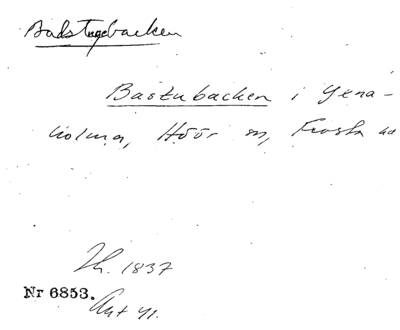 Badstugebacken
Bastubacken i Gena-
holma, Höör sn, Frosta hd
Th. 1837
Nr 6853.
Ant 41.